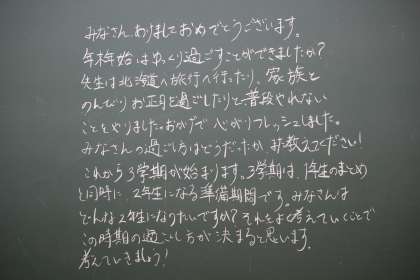 みなさん、あけましておめでとうございます。
年末年始はゆっくり過ごすことができましたか？
先生は北海道へ旅行へ行ったり、家族と
のんびりお正月を過ごしたりと普段やれない
ことをやりました。おかげで心がリフレッシュしました。
みなさんの過ごし方はどうだったか、また教えてください！
これから3学期が始まります。3学期は、1年生のまとめ
と同時に、2年生になる準備期間です。みなさんは
どんな2年生になりたいですか？それをよく考えていくことで
この時期の過ごし方が決まると思います。
考えていきましょう！